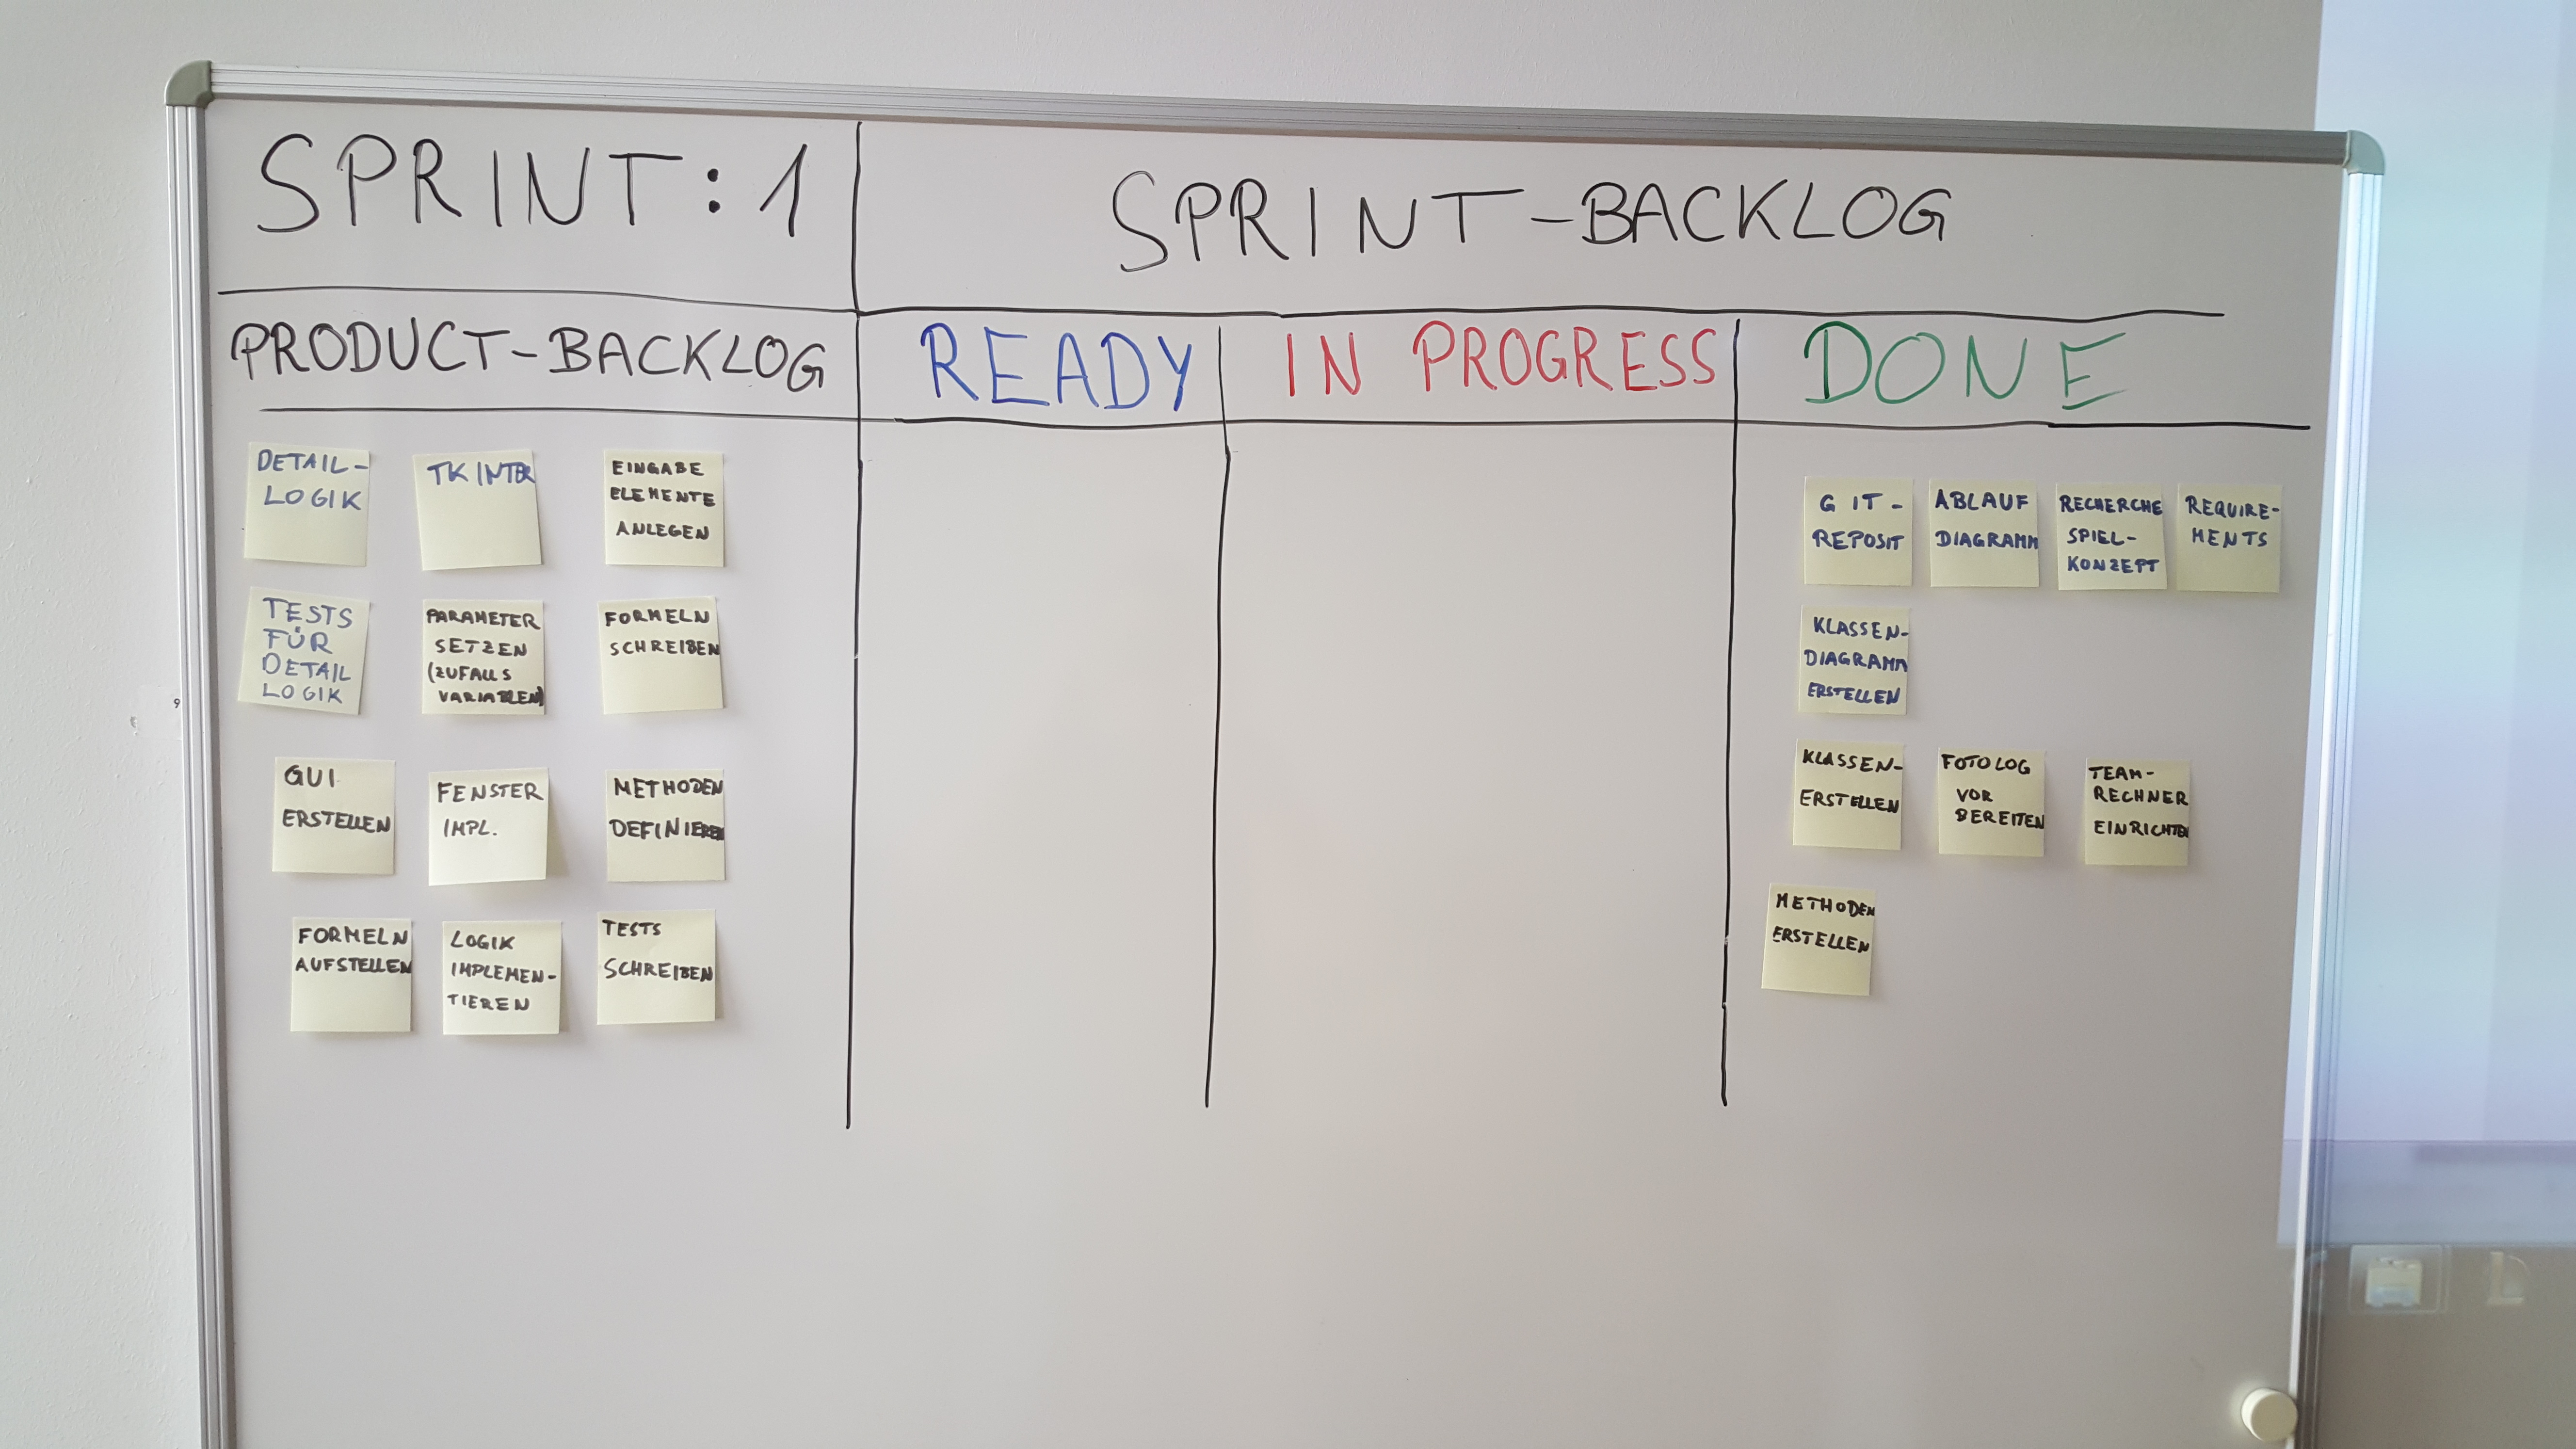 SPRINT: 1
SPRINT-BACKLOG
PRODUCT-BACKLOG
READY
IN PROGRESS
DONE
DETAIL-
LOGIK
TK INTER
EINGABE
ELEMENTE
ANLEGEN
TESTS
FÜR
DETAIL
LOGIK
PARAMETER
SETZEN
(ZUFALLS
VARIABLEN)
FORMELN
SCHREIBEN
GUI
ERSTELLEN
FENSTER
IMPL.
METHODEN
DEFINIEREN
FORMELN
AUFSTELLEN
LOGIK
IMPLEMEN-
TIEREN
TESTS
SCHREIBEN
GIT-
REPOSIT
ABLAUF
DIAGRAMM
RECHERCHE
SPIEL-
KONZEPT
REQUIRE-
MENTS
KLASSEN-
DIAGRAMM
ERSTELLEN
KLASSEN-
ERSTELLEN
FOTOLOG
VOR
BEREITEN
TEAM-
RECHNER
EINRICHTEN
METHODEN
ERSTELLEN